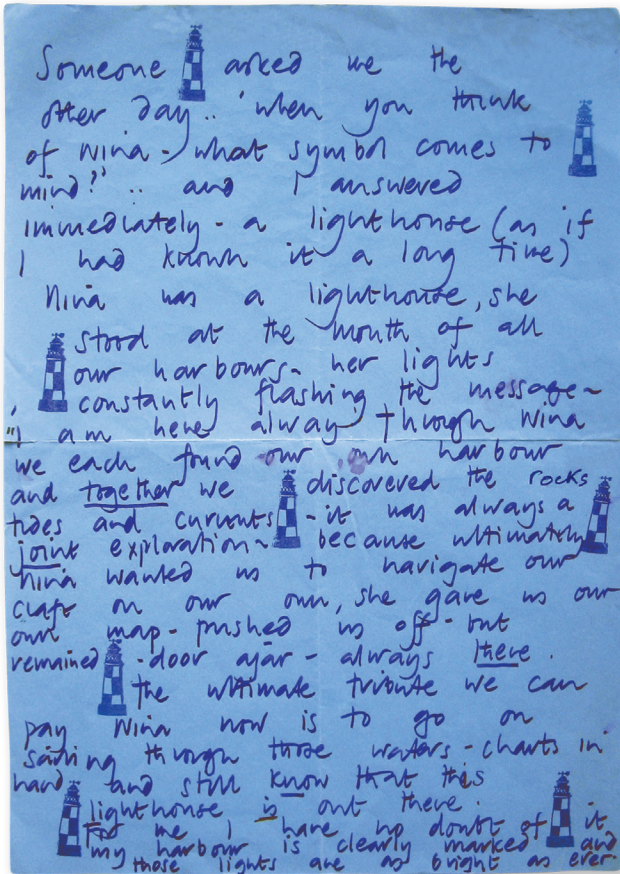 Someone asked me the
other day.. 'when you think
of Nina - what symbol comes to
mind?" .. and I answered
immediately - a lighthouse (as if
I had known it a long time)
Nina was a lighthouse, she
stood at the mouth of all
our harbours - her lights
constantly flashing the message -
"I am here always" through Nina
we each found our own harbour
and together we discovered the rocks
tides and currents - it was always a
joint exploration - because ultimately
Nina wanted us to navigate our
craft on our own, she gave us our
own map - pushed us off - but
remained - door ajar - always there.
the ultimate tribute we can
pay Nina now is to go on
sailing through those waters - charts in
hand and still know that this
lighthouse is out there.
For me I have no doubt of it
my harbour is clearly marked and
those lights are as bright as ever.